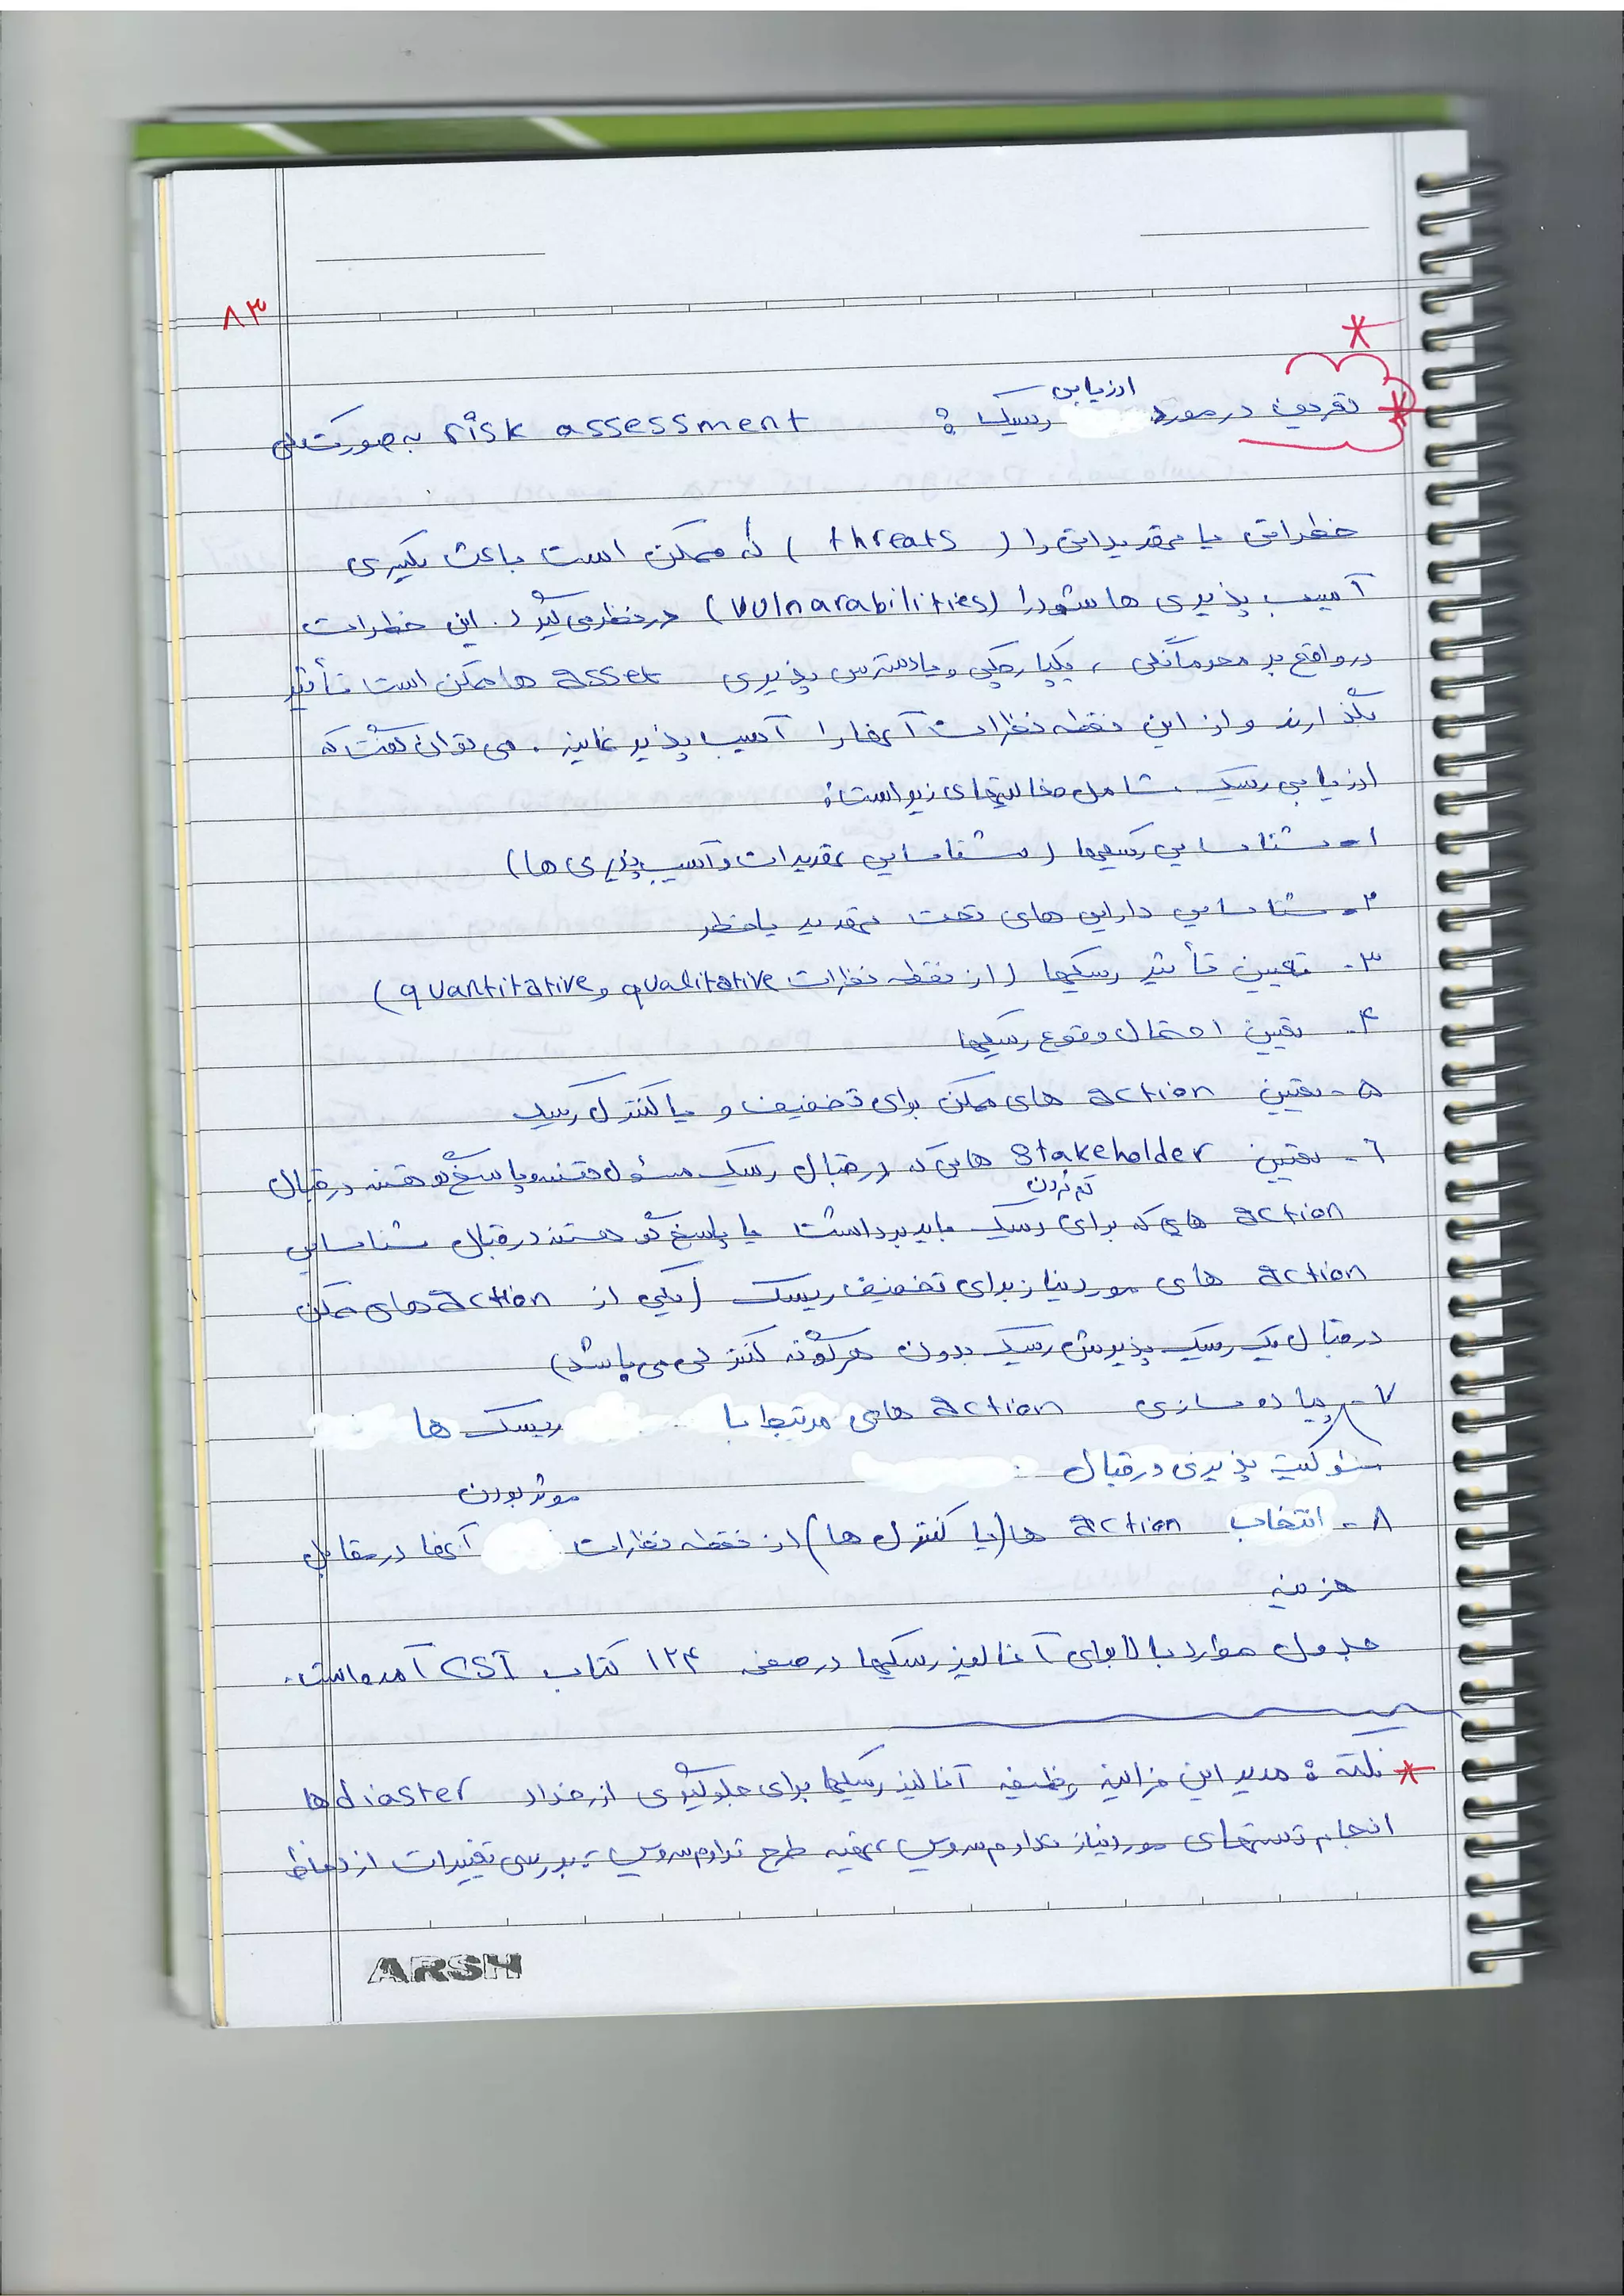 ۸۳
*
* تعریف در مورد ارزیابی ریسک : risk assessment به صورت کلی
خطراتی یا تهدیداتی را (threats) که ممکن است باعث بکگیری
آسیب پذیری ها شود را (vulnarabilities) در نظر می گیرد. این خطرات
در واقع بر محرمانگی ، یکپارچگی و یا دسترس پذیری asset ها ممکن است تأثیر
بگذارند و از این نقطه نظرات آنها را آسیب پذیر نمایند. می توان گفت که
ارزیابی ریسک شامل فعالیتهای زیر است:
۱- شناسایی ریسکها (شناسایی تهدیدات و آسیب پذیری ها)
۲- شناسایی دارایی های تحت تهدید یا خطر
۳- تعیین تأثیر ریسکها (از نقطه نظرات qualitative و quantitative)
۴- تعیین احتمال وقوع ریسکها
۵- تعیین action های ممکن برای تخفیف و یا کنترل ریسک
۶- تعیین Stakeholder هایی که در قبال ریسک مسئول هستند و پاسخ گو هستند در قبال
action هایی که برای کم کردن ریسک باید برداشت یا پاسخ گو هستند در قبال شناسایی
action های مورد نیاز برای تخفیف ریسک (یکی از action های ممکن
در قبال یک ریسک پذیرش ریسک بدون هرگونه کنترلی می باشد)
۷- پیاده سازی action های مرتبط با ریسک ها
مسئولیت پذیری در قبال
۸- انتخاب action ها (یا کنترل ها) از نقطه نظرات موثر بودن آنها در مقابل
هزینه
جدول موارد بالا برای آنالیز ریسکها در صفحه ۱۲۴ کتاب CSI آمده است.
* نکته : مدیر این فرآیند وظیفه آنالیز ریسکها برای جلوگیری از رخداد diaster ها
انجام تستهای مورد نیاز تداوم سرویس ، تهیه طرح تداوم سرویس ، بررسی تغییرات از لحاظ
ARSH